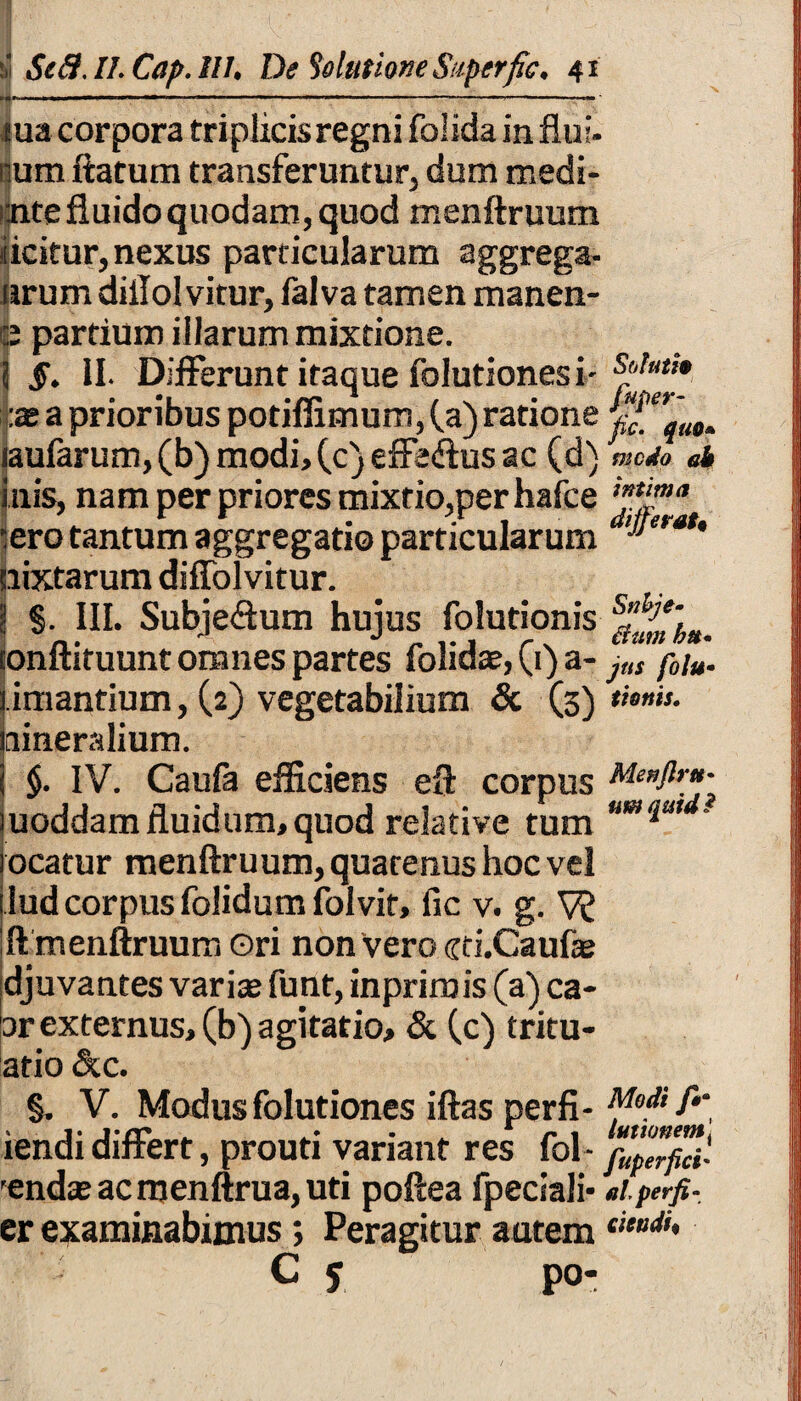 Sect. II. Cap. III. De Solutione Superfic. 41
qua corpora triplicis regni ſolida in flui-
dum ſtatum transferuntur, dum medi-
ante fluido quodam, quod menſtruum
dicitur, nexus particularum aggrega-
tarum diſſolvitur, ſalva tamen manen-
te partium illarum mixtione.
§. II. Differunt itaque ſolutiones i-
tæ a prioribus potiſſimum, (a) ratione
cauſarum, (b) modi, (c) effectus ac (d)
finis, nam per priores mixtio, per haſce
vero tantum aggregatio particularum
mixtarum diſſolvitur.
Solutio
ſuper-
fic. quo-
modo ab
intima
differat.
§. III. Subjectum hujus ſolutionis
conſtituunt omnes partes ſolidæ, (1) a-
nimantium, (2) vegetabilium & (3)
mineralium.
Subje-
ctum hu-
jus ſolu-
tionis.
§. IV. Cauſa efficiens eſt corpus
quoddam fluidum, quod relative tum
vocatur menſtruum, quatenus hoc vel
illud corpus ſolidum ſolvit, ſic v. g. V℟
eſt menſtruum ☉ri non vero ☾ti. Cauſæ
adjuvantes variæ ſunt, inprimis (a) ca-
lor externus, (b) agitatio, & (c) tritu-
ratio &c.
Menſtru-
um quid?
§. V. Modus ſolutiones iſtas perfi-
ciendi differt, prouti variant res ſol-
vendæ ac menſtrua, uti poſtea ſpeciali-
ter examinabimus; Peragitur autem
Modi ſo-
lutionem
ſuperfici-
al. perfi-
ciendi.
C 5 po-